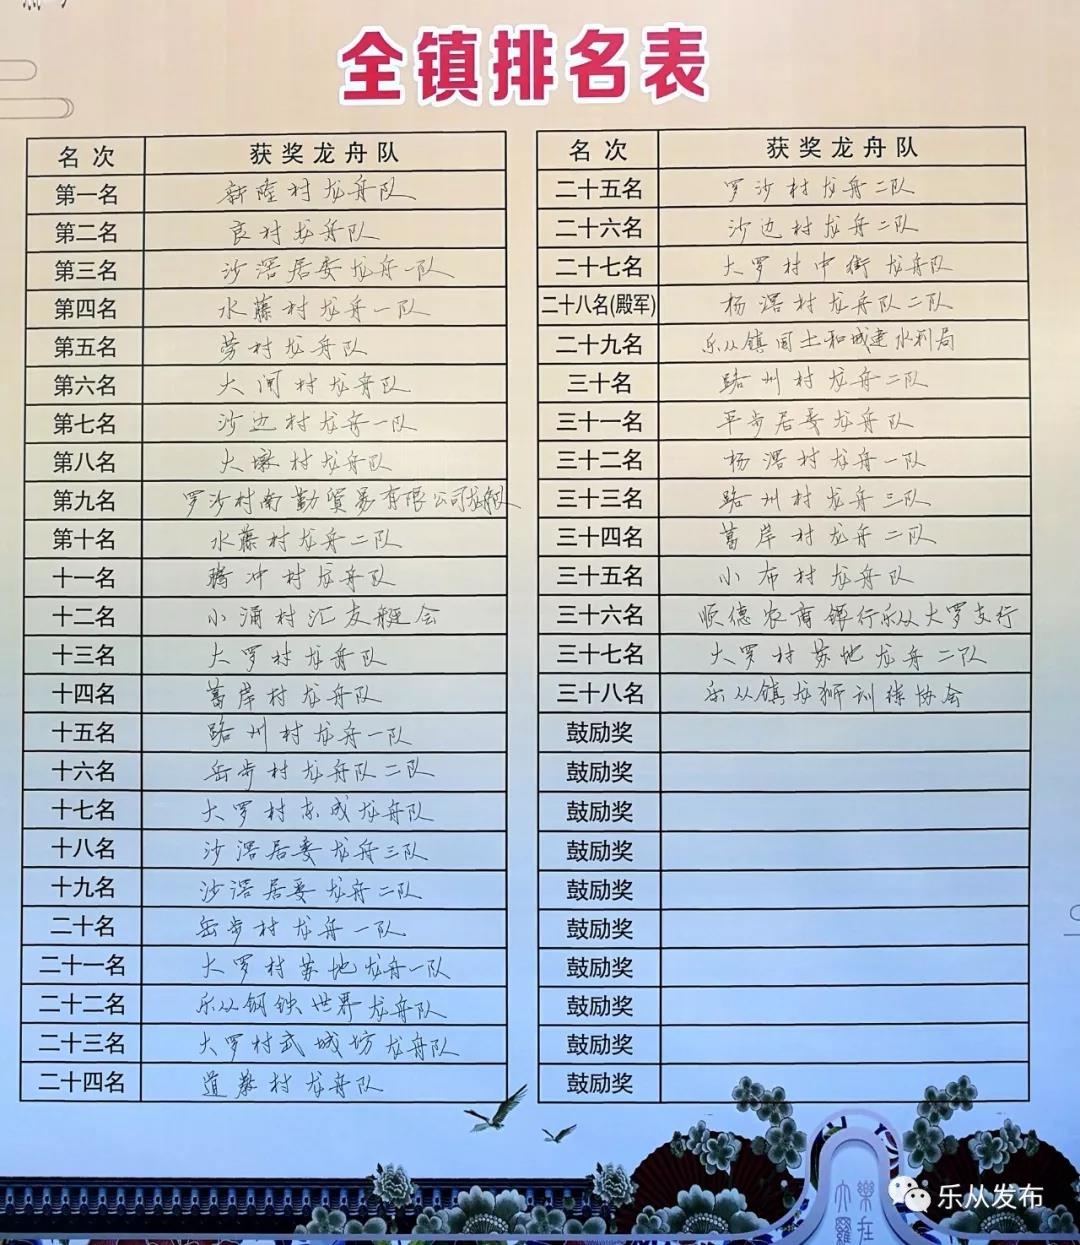 全镇排名表
名次 获奖龙舟队
第一名 新隆村龙舟队
第二名 良村龙舟队
第三名 沙滘居委龙舟一队
第四名 水藤村龙舟一队
第五名 劳村龙舟队
第六名 大闸村龙舟队
第七名 沙边村龙舟一队
第八名 大墩村龙舟队
第九名 罗沙村南勤貿易有限公司龙舟队
第十名 水藤村龙舟二队
十一名 腾冲村龙舟队
十二名 小涌村汇友艇会
十三名 大罗村龙舟队
十四名 葛岸村龙舟队
十五名 路州村龙舟一队
十六名 岳步村龙舟队二队
十七名 大罗村东成龙舟队
十八名 沙滘居委龙舟三队
十九名 沙滘居委龙舟二队
二十名 岳步村龙舟一队
二十一名 大罗村苏地龙舟一队
二十二名 乐从钢铁世界龙舟队
二十三名 大罗村武城坊龙舟队
二十四名 道教村龙舟队
名次 获奖龙舟队
二十五名 罗沙村龙舟二队
二十六名 沙边村龙舟二队
二十七名 大罗村中街龙舟队
二十八名(殿军) 杨滘村龙舟队二队
二十九名 乐从镇国土和城建水利局
三十名 路州村龙舟二队
三十一名 平步居委龙舟队
三十二名 杨滘村龙舟一队
三十三名 路州村龙舟三队
三十四名 葛岸村龙舟二队
三十五名 小布村龙舟队
三十六名 顺德农商银行乐从大罗支行
三十七名 大罗村苏地龙舟二队
三十八名 乐从镇龙狮训练协会
鼓励奖
鼓励奖
鼓励奖
鼓励奖
鼓励奖
鼓励奖
鼓励奖
鼓励奖
鼓励奖
鼓励奖
樂在
大羅
乐从发布